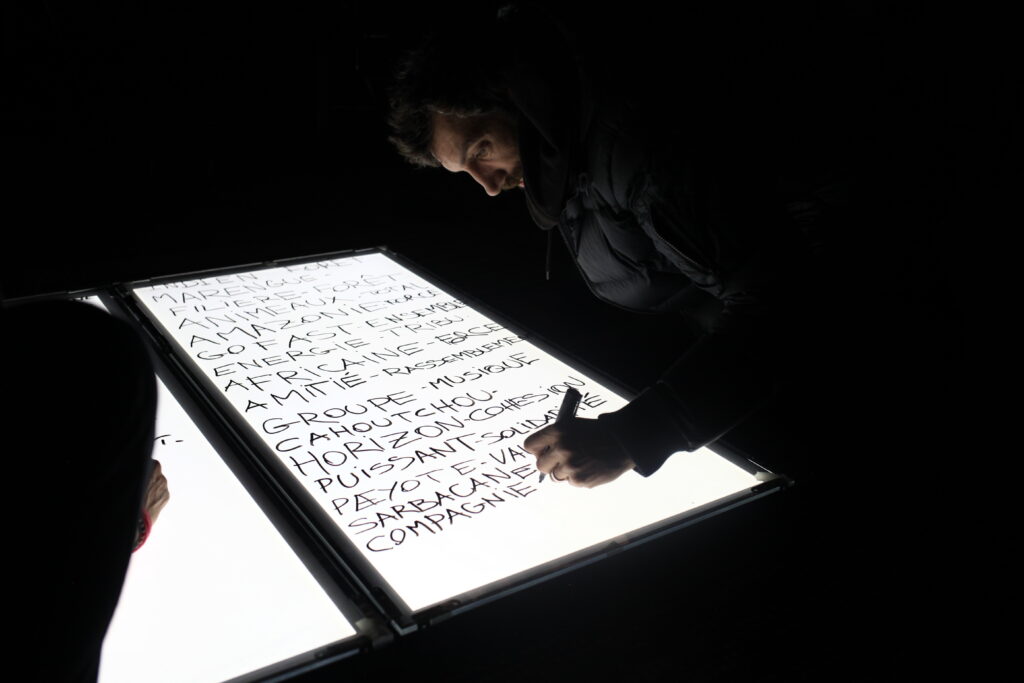 FORÊT
MARENGUE-
FILIÈRE-FORÊT
ANIMEAUX-TOTAL
AMAZONIE FORCE
GO FAST ENSEMBLE
ENERGIE-TRIBU
AFRICAINE-BERGE
AMITIÉ-RASSEMBLEMENT
GROUPE-MUSIQUE
CAHOUTCHOU-
HORIZON-COHESION
PUISSANT-SOLIDARITÉ
PÆYOTE-
SARBACANE
COMPAGNIE